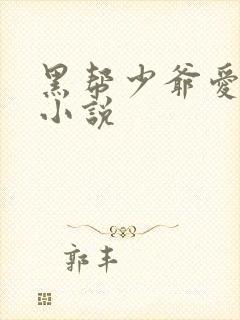 黑帮少爷愛
小說
郭丰